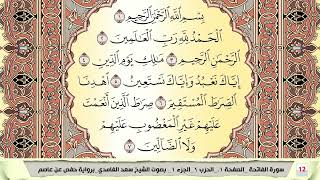 بِسْمِ اللَّهِ الرَّحْمَٰنِ الرَّحِيمِ ١
الْحَمْدُ لِلَّهِ رَبِّ الْعَالَمِينَ ٢
الرَّحْمَٰنِ الرَّحِيمِ ٣ مَالِكِ يَوْمِ الدِّينِ ٤
إِيَّاكَ نَعْبُدُ وَإِيَّاكَ نَسْتَعِينُ ٥ اهْدِنَا
الصِّرَاطَ الْمُسْتَقِيمَ ٦ صِرَاطَ الَّذِينَ أَنْعَمْتَ
عَلَيْهِمْ غَيْرِ الْمَغْضُوبِ عَلَيْهِمْ
وَلَا الضَّالِّينَ ٧
سورة الفاتحة _ الصفحة ١ _ الحزب ١ _ الجزء ١ _ بصوت الشيخ سعد الغامدي _ برواية حفص عن عاصم
12